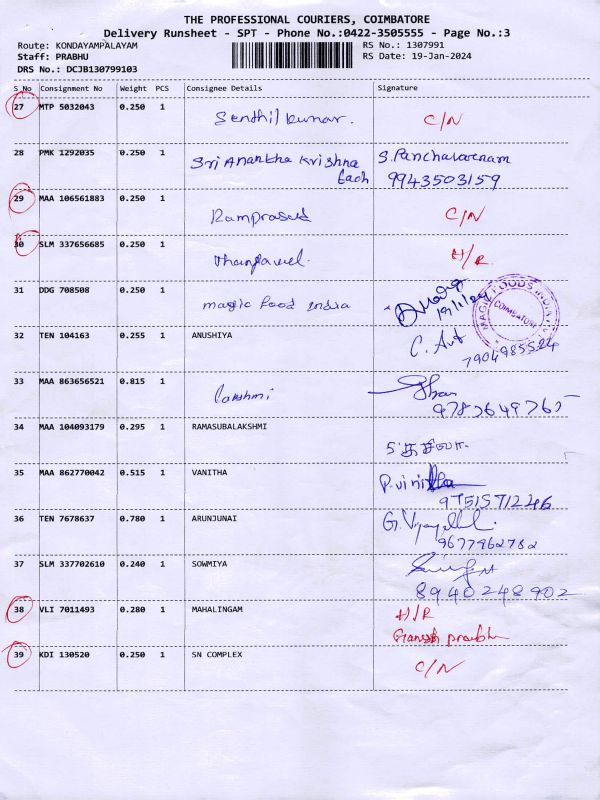 THE PROFESSIONAL COURIERS, COIMBATORE
Delivery Runsheet - SPT - Phone No.:0422-3505555 - Page No.:3
Route: KONDAYAMPALAYAM RS No.: 1307991
Staff: PRABHU RS Date: 19-Jan-2024
DRS No.: DCJB130799103
S No Consignment No Weight PCS Consignee Details Signature
27 MTP 5032043 0.250 1 Senthil kumar. C/N
28 PMK 1292035 0.250 1 Sri Anantha Krishna S. Pancharatnam
Each 9943503159
29 MAA 106561883 0.250 1 Ramprasad C/N
30 SLM 337656685 0.250 1 Thangavel. H/R
31 DDG 708508 0.250 1 magic food India 19/1/24
MAGIC FOODS INDIA COIMBATORE
32 TEN 104163 0.255 1 ANUSHIYA C.
7904985524
33 MAA 863656521 0.815 1 Lakshmi
9783649765
34 MAA 104093179 0.295 1 RAMASUBALAKSHMI
35 MAA 862770042 0.515 1 VANITHA P.vinitha
9751571246
36 TEN 7678637 0.780 1 ARUNJUNAI
9677962782
37 SLM 337702610 0.240 1 SOWMIYA
8940248902
38 VLI 7011493 0.280 1 MAHALINGAM H/R
Ganesh prabhu
39 KDI 130520 0.250 1 SN COMPLEX C/N